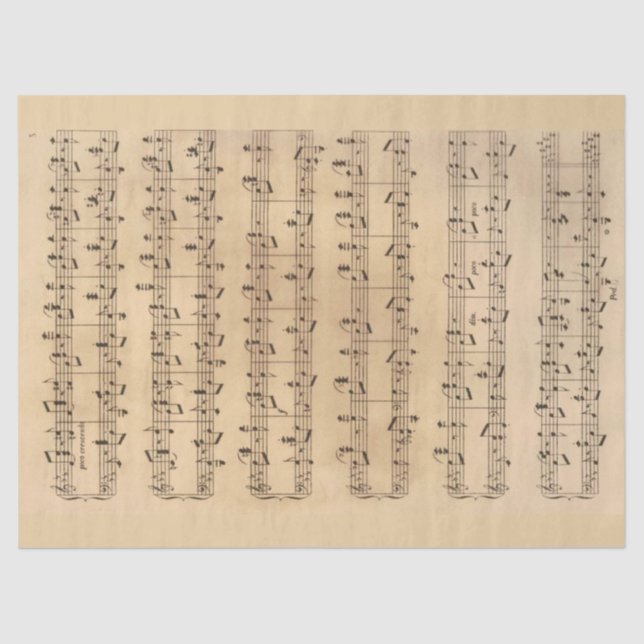 5
poco crescendo
dim. poco a poco
Ped.